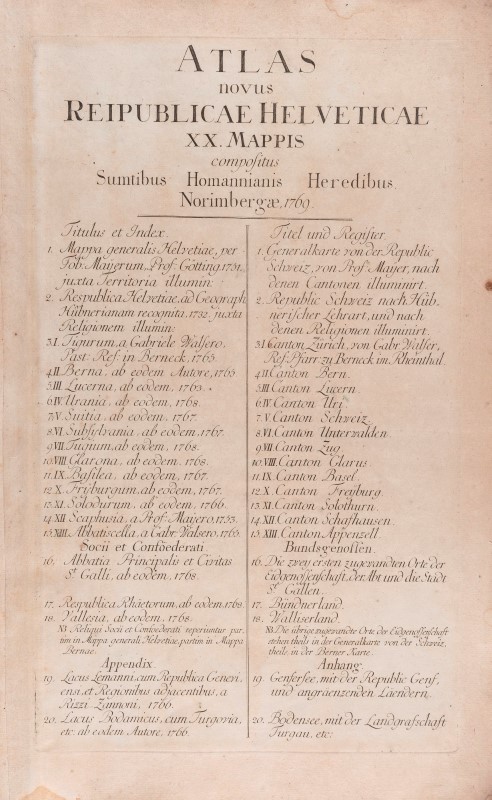 ATLAS
novus
REIPUBLICAE HELVETICAE
XX. MAPPIS
compositus
Sumtibus Homannianis Heredibus.
Norimbergæ, 1769.
Titulus et Index.
1. Mappa generalis Helvetiae, per
Tob. Maijerum, Prof. Götting. 1751.
juxta Territoria illumin:
2. Respublica Helvetiae, ad Geograph
Hübnerianam recognita, 1732. juxta
Religionem illumin:
3.I. Tigurum, a Gabriele Walsero,
Past. Ref. in Berneck, 1765.
4.II Berna, ab eodem Autore, 1765
5.III. Lucerna, ab eodem, 1763.
6.IV. Urania, ab eodem, 1768.
7.V. Suitia, ab eodem, 1767.
8.VI. Subsylvania, ab eodem, 1767.
9.VII. Tugium, ab eodem, 1768.
10.VIII. Glarona, ab eodem, 1768.
11.IX. Basilea, ab eodem, 1767.
12.X. Fryburgum, ab eodem, 1767.
13.XI. Solodurum, ab eodem, 1766.
14.XII Scaphusia, a Prof. Maijero, 1753.
15.XIII. Abbatiscella, a Gabr. Walsero, 1765.
Socii et Confoederati
16. Abbatia Principalis et Civitas
St. Galli, ab eodem, 1768.
17. Respublica Rhaetorum, ab eodem, 1768.
18. Vallesia, ab eodem, 1768.
NB Reliqui Socii et Confoederati reperiuntur par
tim in Mappa generali Helvetiae, partim in Mappa
Bernae.
Appendix.
19. Lacus Lemanni, cum Republica Genevi
ensi, et Regionibus adjacentibus, a
Rizzi Zannoni, 1766.
20. Lacus Bodamicus, cum Turgovia,
etc: ab eodem Autore, 1766.
Titel und Register.
1. Generalkarte von der Republic
Schweiz, von Prof. Majer, nach
denen Cantonen illuminirt.
2. Republic Schweiz nach Hüb-
nerischer Lehrart, und nach
denen Religionen illuminirt.
3.I Canton Zürich, von Gabr. Walser,
Ref. Pfarr zu Berneck im Rheinthal.
4.II Canton Bern.
5.III Canton Lucern.
6.IV. Canton Uri.
7.V. Canton Schweiz.
8.VI. Canton Unterwalden.
9.VII. Canton Zug.
10.VIII. Canton Glarus.
11.IX. Canton Basel.
12.X. Canton Freyburg.
13.XI. Canton Solothurn.
14.XII. Canton Schafhausen.
15.XIII Canton Appenzell.
Bundsgenossen.
16. Die zwey ersten zugewandten Orte der
Eidgenossenschaft, der Abt und die Stadt
St. Gallen.
17. Bündnerland.
18. Walliserland.
NB. Die übrige zugewandte Orte der Eidgenossenschaft
stehen theils in der Generalkarte von der Schweiz,
theils, in der Berner Karte.
Anhang.
19. Genfersee, mit der Republic Genf,
und angraenzenden Laendern.
20. Bodensee, mit der Landgrafschaft
Turgau, etc: